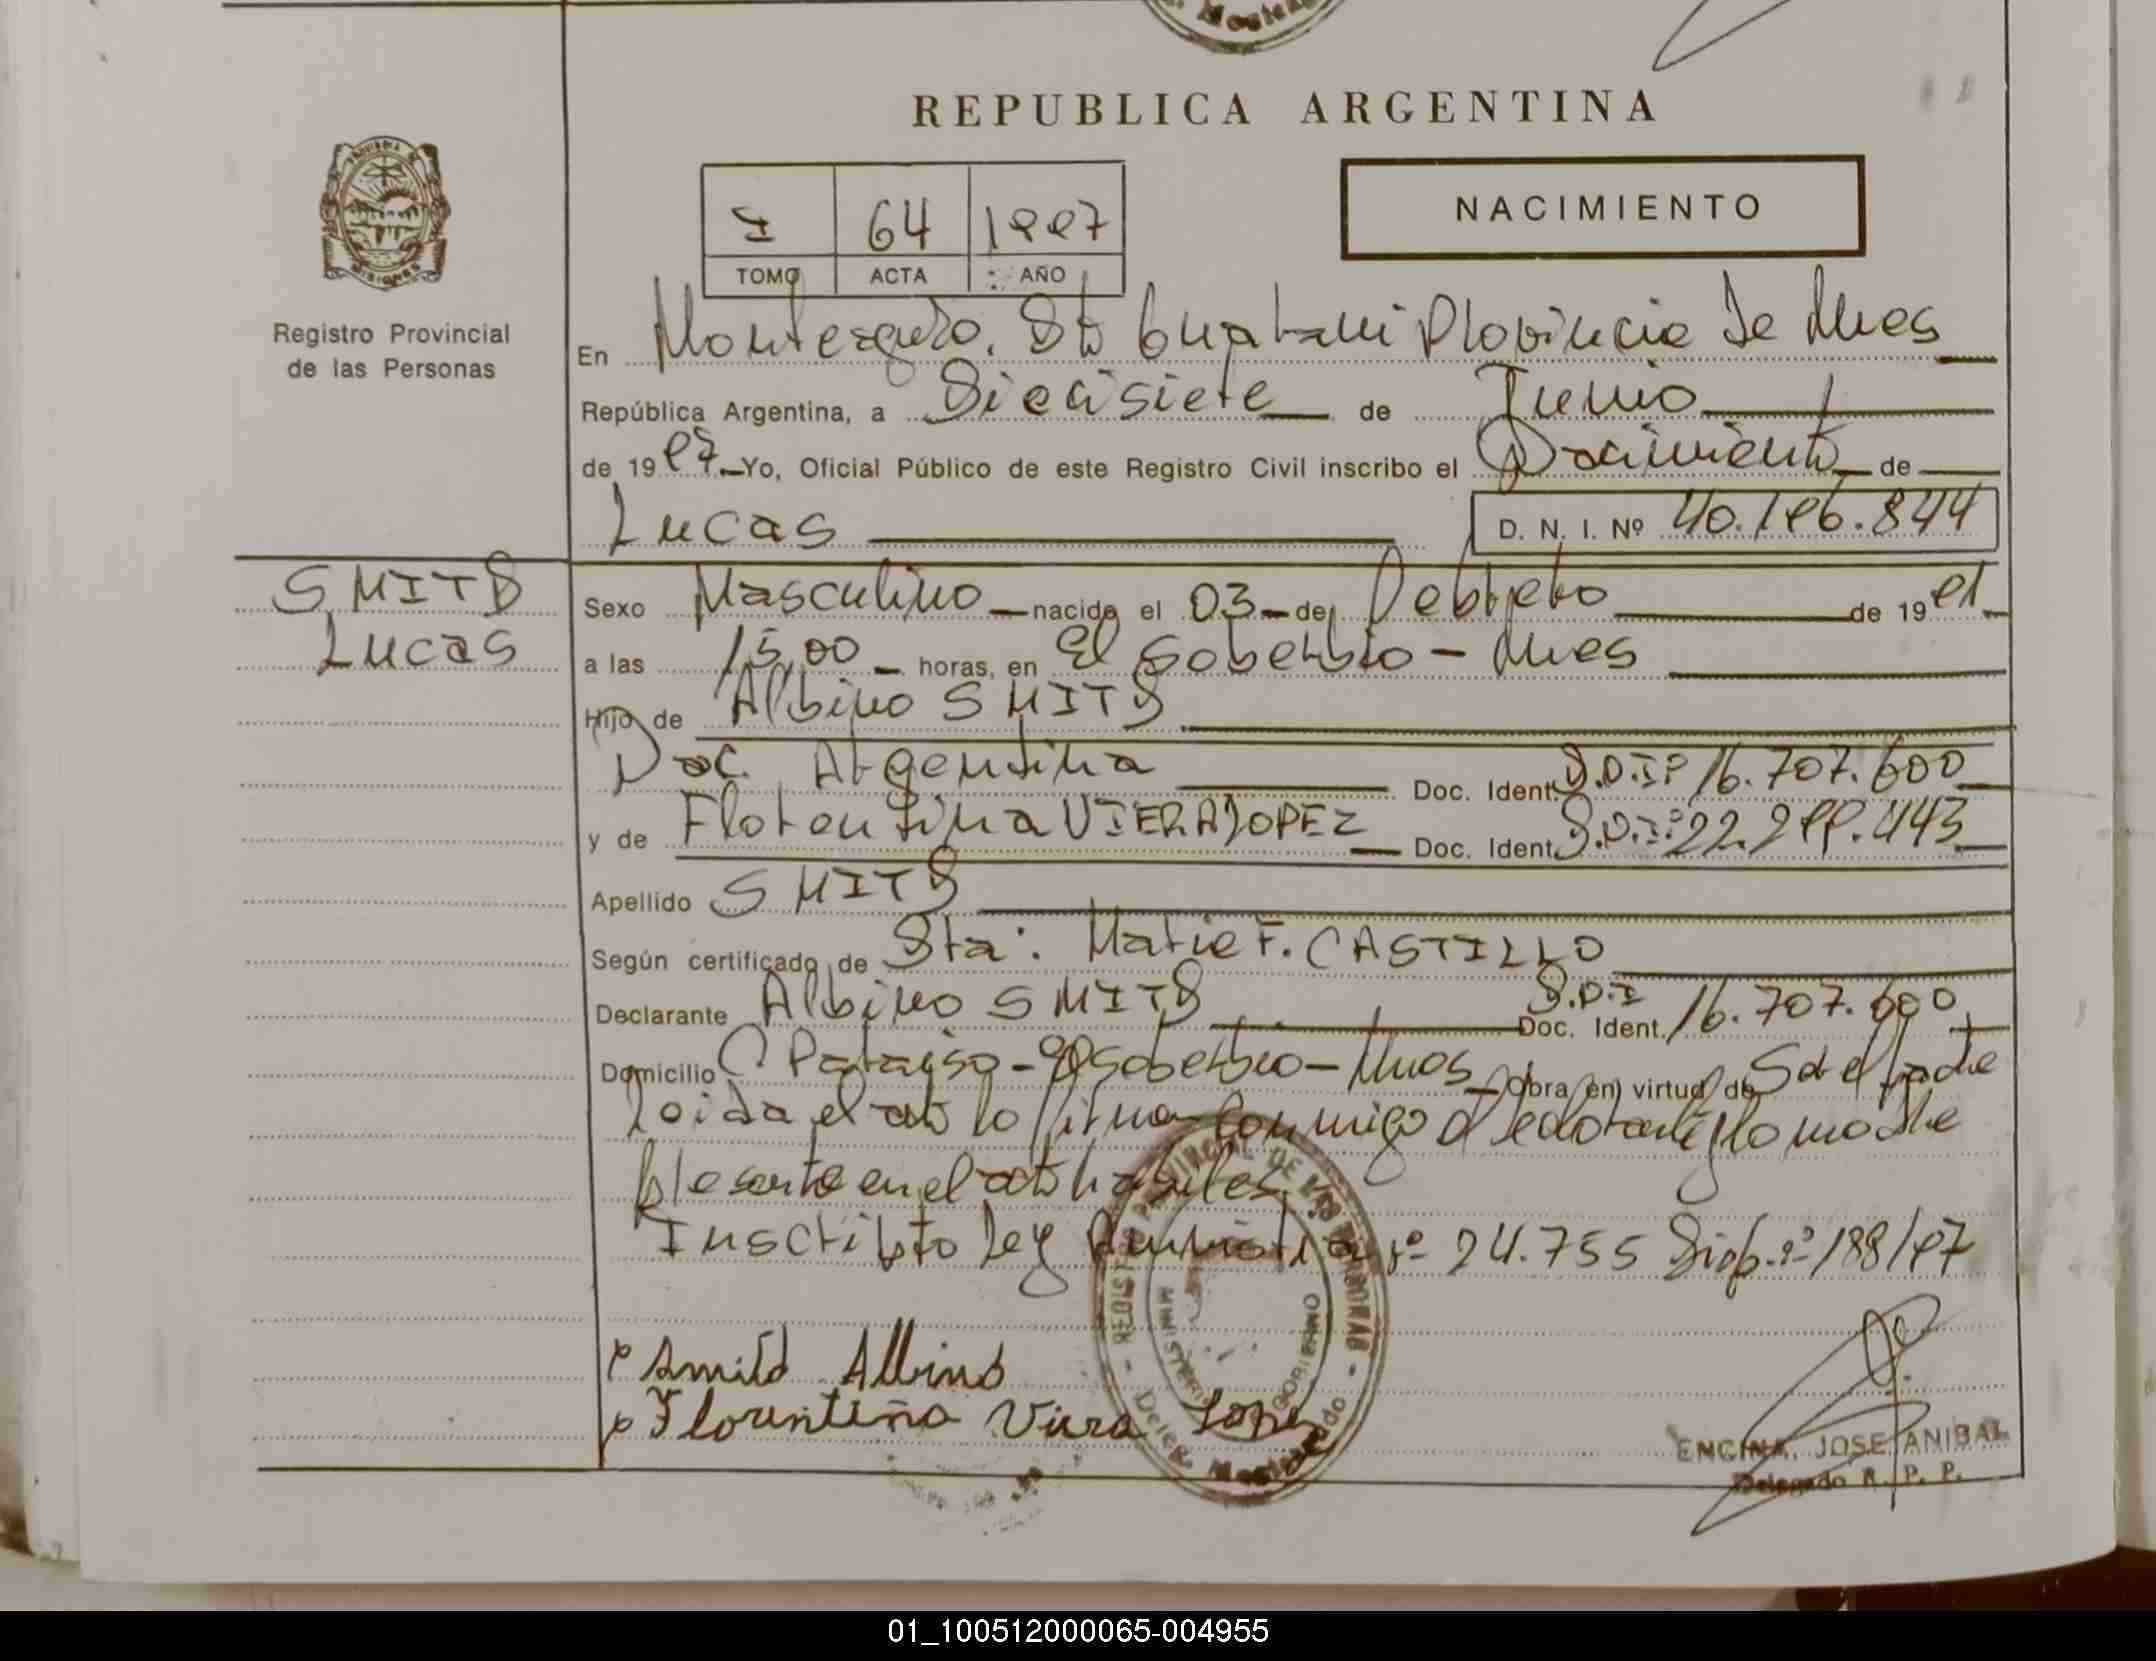 REPUBLICA ARGENTINA
NACIMIENTO
I 64 1997
TOMO ACTA AÑO
Registro Provincial
de las Personas
En Monteagudo. Dto Guarani Provincia de Mnes
República Argentina, a Diecisiete de Junio
de 1997 Yo, Oficial Público de este Registro Civil inscribo el Nacimiento de
Lucas D. N. I. Nº 40.196.844
SMITD
Lucas
Sexo Masculino nacido el 03 de Febrero de 1991
a las 15,00 horas, en El Soberbio - Mnes
Hijo de Albino SMITD
Nac. Argentina Doc. Ident. D.N.I: 16.707.600
y de Florentina VIERA LOPEZ Doc. Ident. D.N.I: 22.299.443
Apellido SMITD
Según certificado de Sta: Maria F. CASTILLO
Declarante Albino SMITD Doc. Ident. D.N.I 16.707.600
Domicilio C° Paraiso - El Soberbio - Mnes Obra en virtud de Sd el padre
Leida el acta la firman conmigo el declarante y la madre
presente en el acto habiles
Inscripto ley Amnistia nº 24.755 Disp. nº 188/97
REGISTRO PROVINCIAL DE LAS PERSONAS
MINISTERIO GOBIERNO
Deleg. Monteagudo
x Smitd Albino
x Florentina Viera Lopez
ENCINA, JOSE ANIBAL
Delegado R. P. P.
01_100512000065-004955